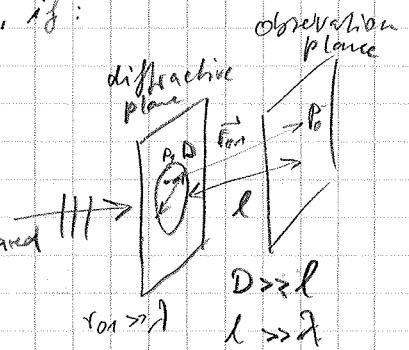 , if:
observation
plance
diffractive
plane
r⃗₀₁
P₀
P₁ D
l
D >> l
r₀₁ >> λ
l >> λ